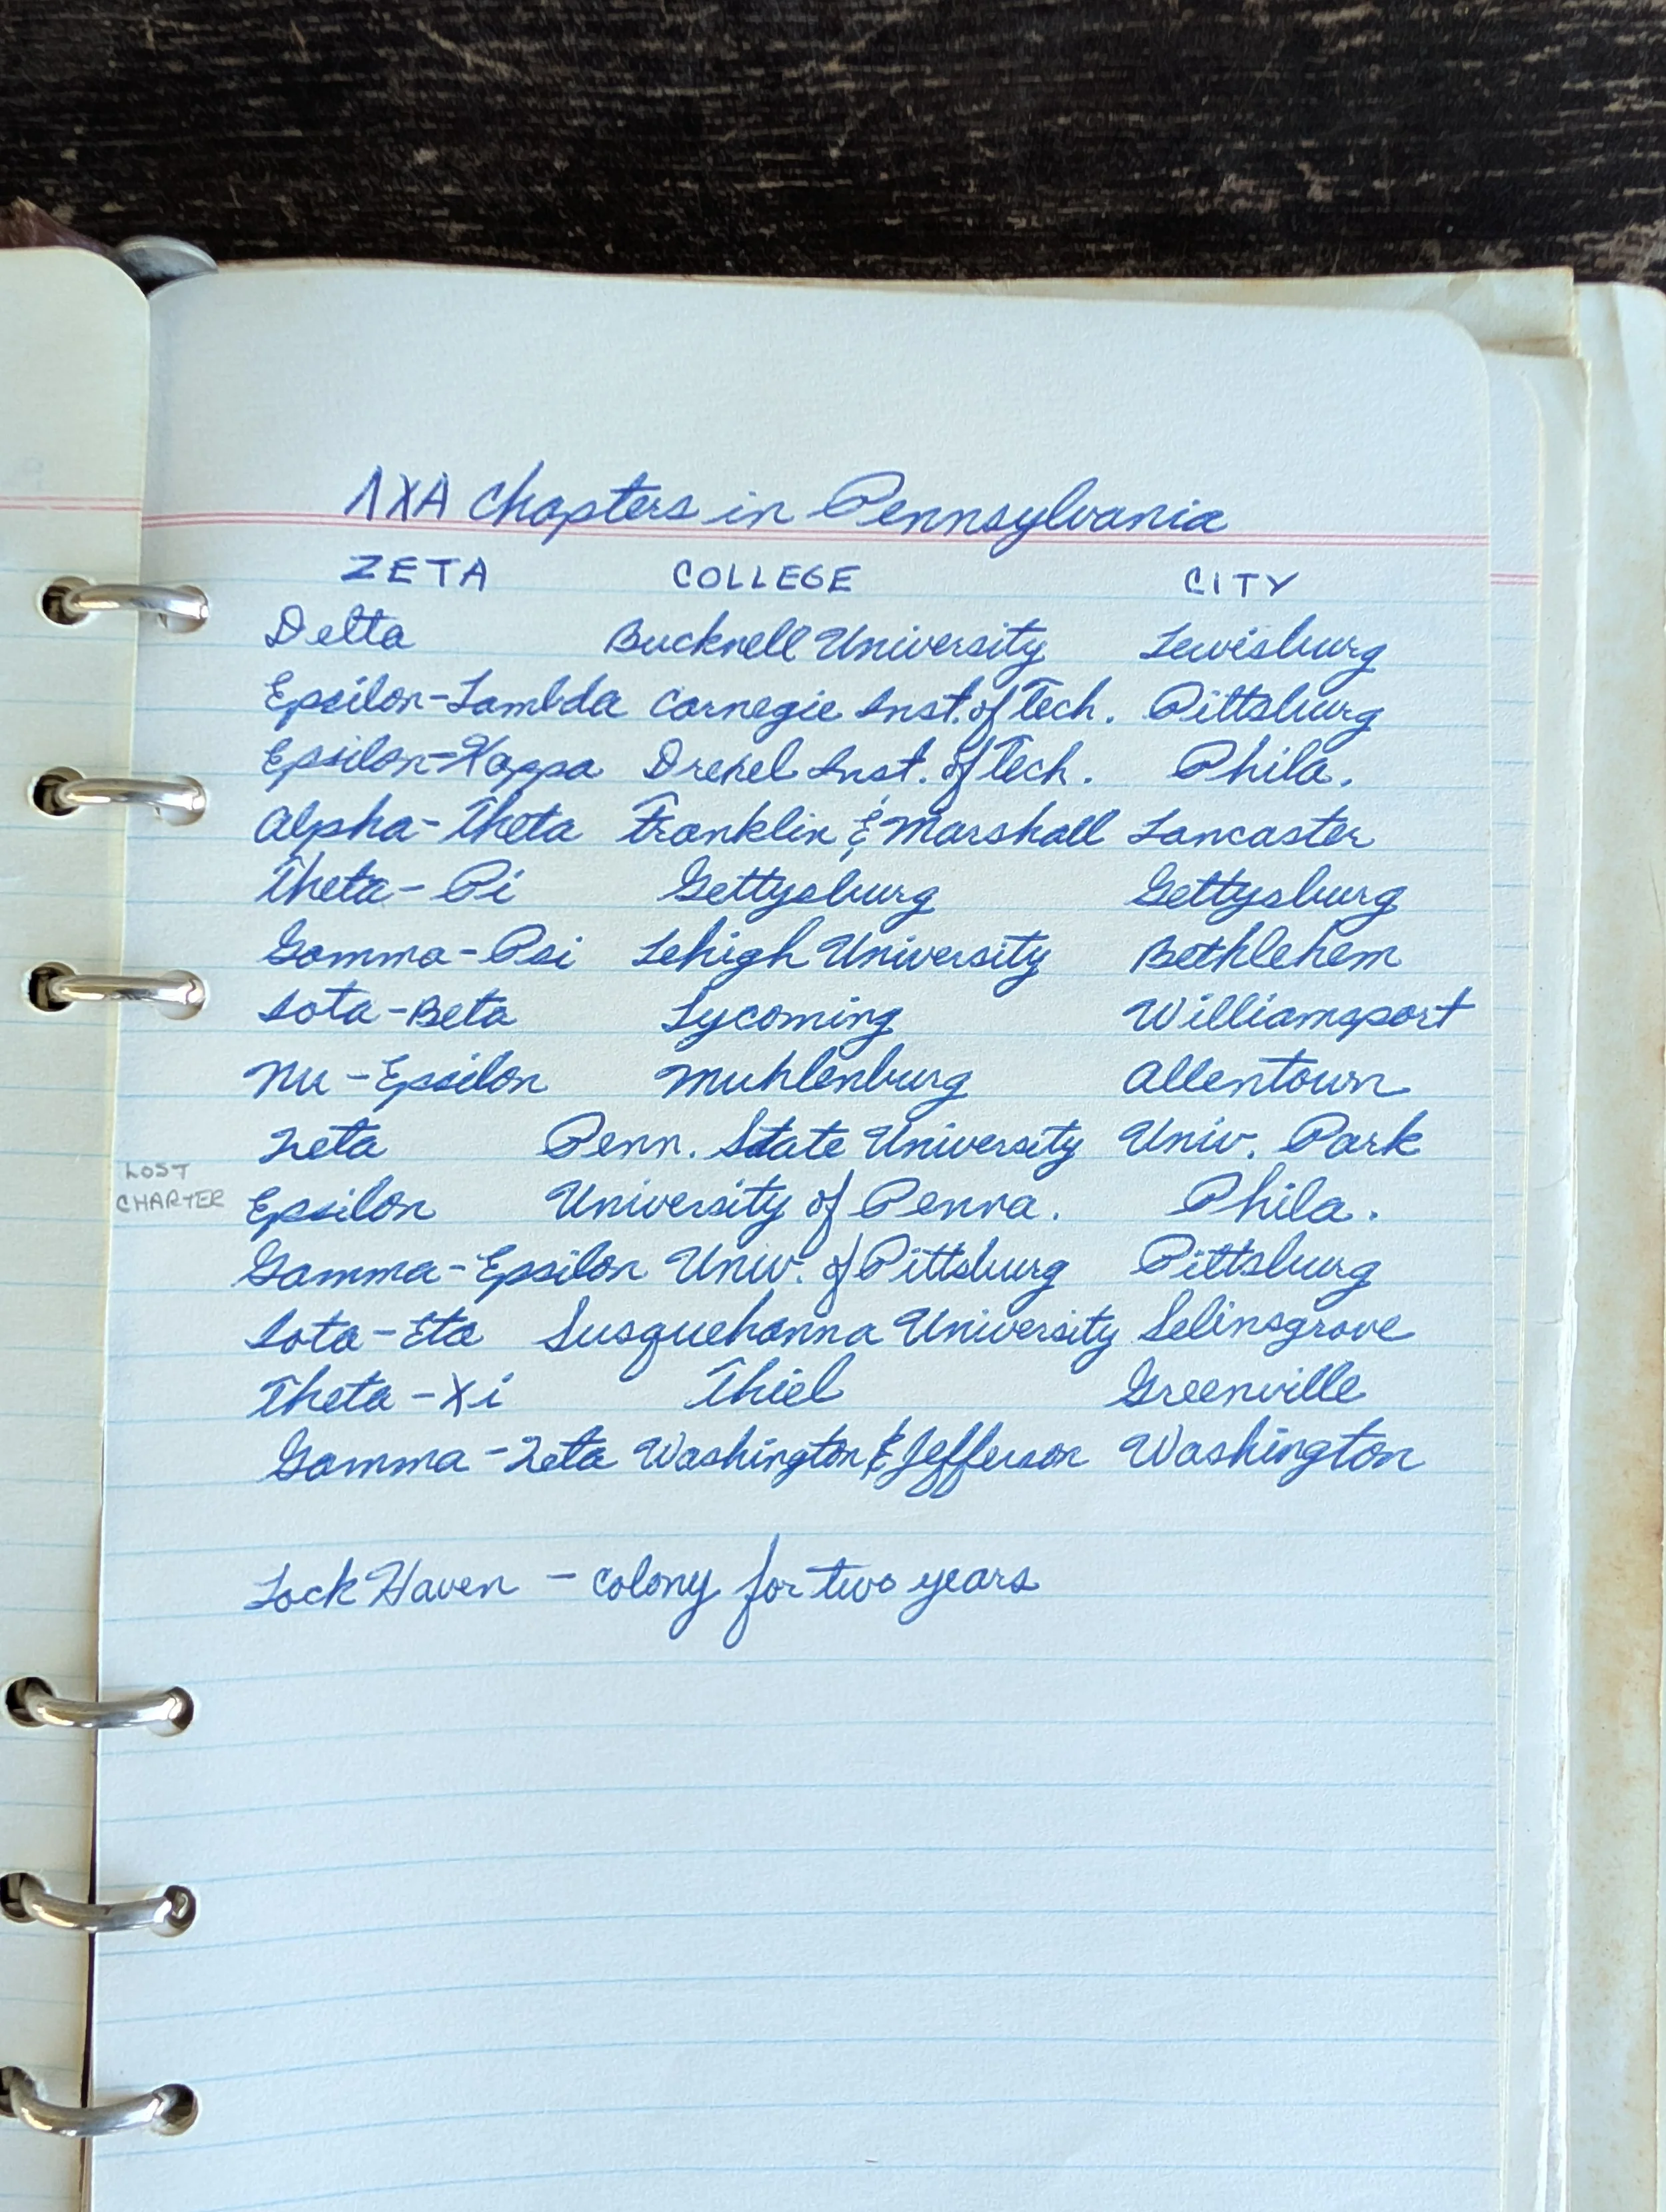 ΛΧΑ Chapters in Pennsylvania
ZETA COLLEGE CITY
Delta Bucknell University Lewisburg
Epsilon-Lambda Carnegie Inst. of Tech. Pittsburg
Epsilon-Kappa Drexel Inst. of Tech. Phila.
Alpha-Theta Franklin & Marshall Lancaster
Theta-Pi Gettysburg Gettysburg
Gamma-Psi Lehigh University Bethlehem
Iota-Beta Lycoming Williamsport
Nu-Epsilon Muhlenburg Allentown
Zeta Penn. State University Univ. Park
LOST CHARTER Epsilon University of Penna. Phila.
Gamma-Epsilon Univ. of Pittsburg Pittsburg
Iota-Eta Susquehanna University Selinsgrove
Theta-Xi Thiel Greenville
Gamma-Zeta Washington & Jefferson Washington
Lock Haven - colony for two years